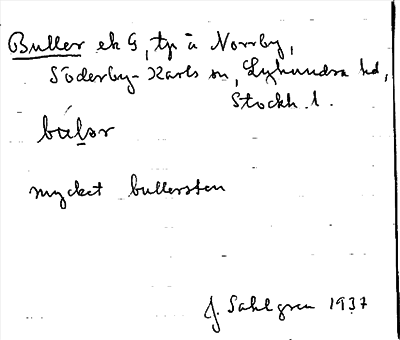 Buller ek G, tp å Norrby,
Söderby-Karls sn, Lyhundra hd,
Stockh. l.
bulər
mycket bullersten
J. Sahlgren 1937